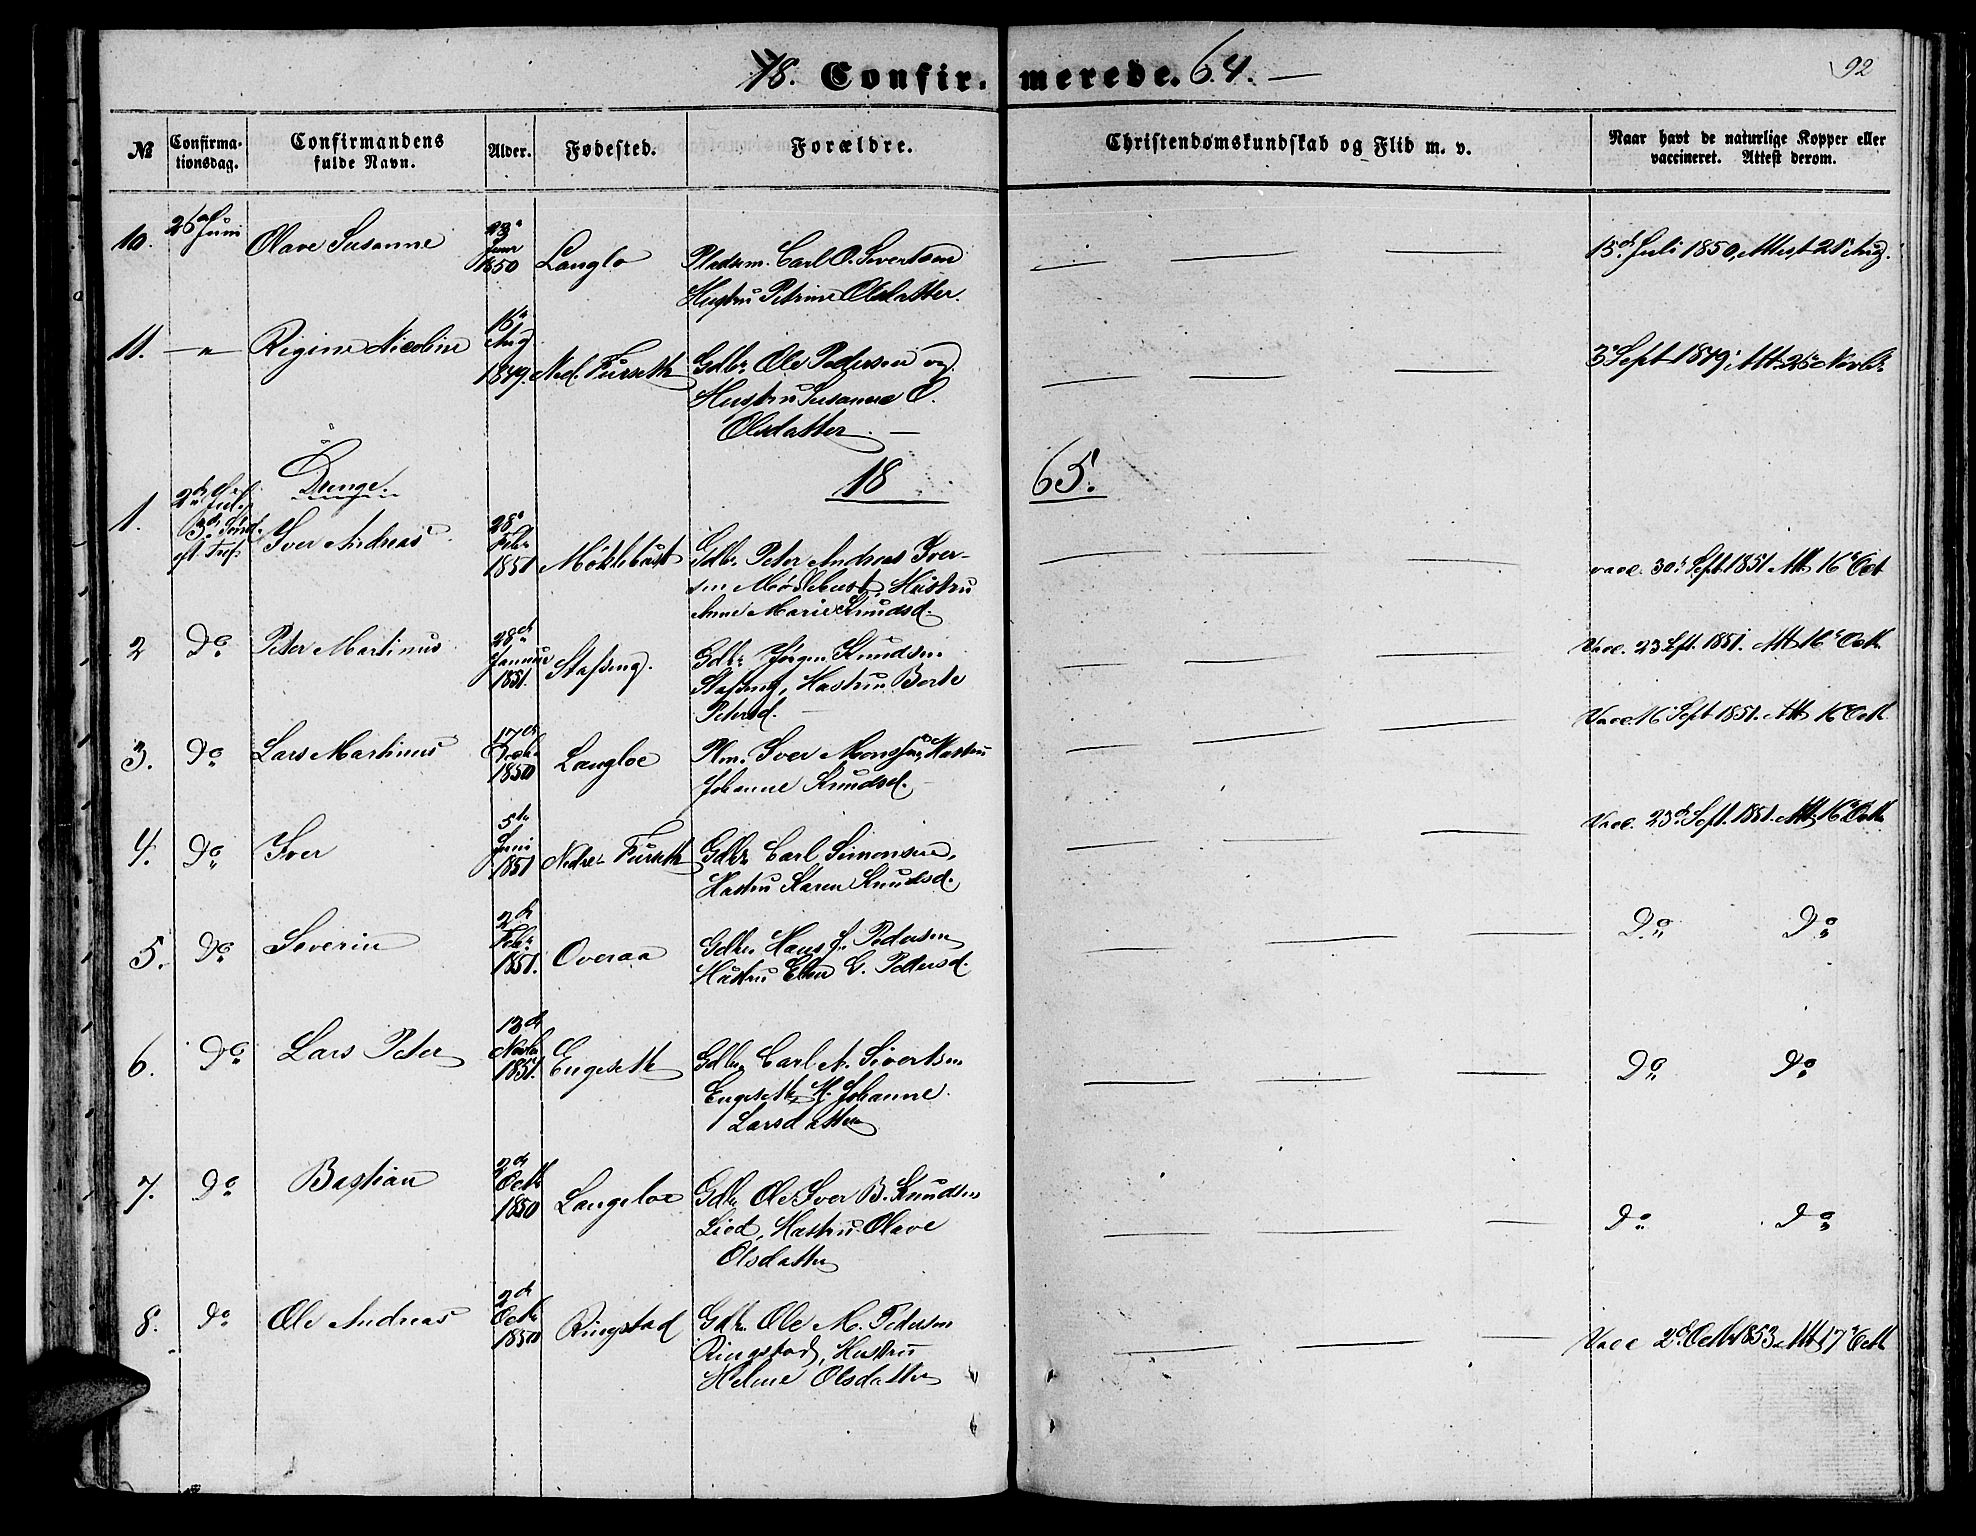 18. Confirmerede. 64. —
92
№
Confirma-
tionsdag.
Confirmandens
fulde Navn.
Alder.
Fødested.
Forældre.
Christendomskundskab og Flid m. v.
Naar havt de naturlige Kopper eller
vaccineret. Attest derom.
10.
26 Juni
Olave Susanne
1850
Langlo
Pladsm. Carl O. Sivertsen
Hustru Petrine Olsdatter.
15de Juli 1850, Attest 21 Aug.
11.
— " —
Regine Nicoline
16de
Aug
1849
Ned. Furseth
Gdbr. Ole Pedersen og
Hustru Susanne O.
Olsdatter. —
3 Sept 1849. Att. Novbr
Drenge.
18
65.
1.
Iver Andreas
28de
Febr
1851
Møklebust
Gdbr. Peter Andreas Iver-
sen Møklebust, Hustru
Anne Marie Knudsd.
vacc. 30 Sept 1851 Att. 16 Oct
2
Do
Peter Martinus
28de
Januar
1851.
Stafseng.
Gdbr. Jørgen Knudsen
Stafseng, Hustru Berte
Petersd. —
Vacc. 23 Spt. 1851. Att 16 Octb.
3.
Do
Lars Martinus
17de
1850
Langloe
Plm. Iver Monssen, Hustru
Johanne Knudsd. —
Vacc 16 Sept 1851. Att 16 Octb
4.
Do
Iver
5te
Juni
1851
Nedre Furseth
Gdbr. Carl Simonsen,
Hustru Karen Knudsd.
Vacc. 23de Sept. 1851. Att. 16 Octb
5.
Do
Severin
2de
Febr.
1851.
Overaa
Gdbr. Hans J. Pedersen
Hustru Elen G. Petersd.
Do Do
6.
Do
Lars Peter
13de
Novbr
1851.
Engeseth
Gdbr. Carl A. Sivertsen
Engeseth, H. Johanne
Larsdatter
Do Do
7.
Do
Bastian
2de
Octb
1850
Langeloe
Gdbr. Ole Iver B. Knudsen
Liod, Hustru Olave
Olsdatter
Do Do
8.
Do
Ole Andreas
2de
Octb
1850
Ringstad
Gdbr. Ole M. Pedersen
Ringstad, Hustru
Helene Olsdatter
Vacc 2de Octb 1853. Att. 17 Octb